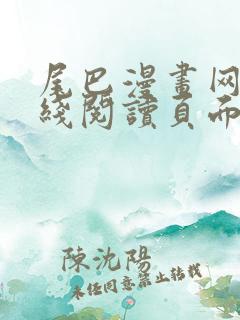 尾巴漫畫网
綫閱讀頁而
陳沈陽
未经同意禁止转载